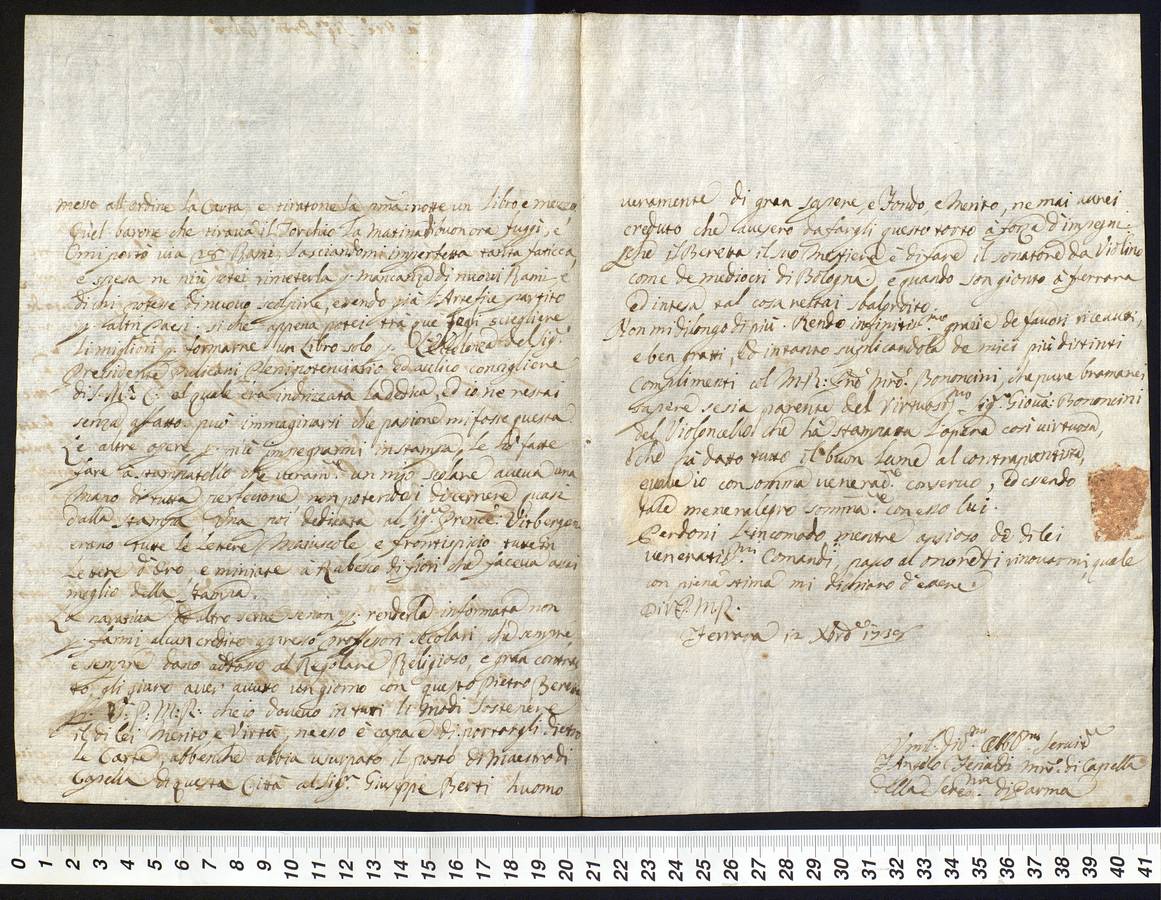 messo all'ordine la Carta, e tiratone la pma notte un Libro e mezzo
quel barone che tirava il Torchio la Matina di buon ora fuggì, e
mi portò via 28 Rami, lasciandomi imperfetta tanta fatica,
e spesa ne più potei rimeterla p. mancanza di nuovi Rami, e
di chi potesse di nuovo scolpire, essendo già l'Artefice partito
p. altri Paesi. si che appena potei trà que fogli sciegliere
li migliori p. formarne un Libro solo p. del Sig.
Presidente Plenipotenziario ed aulico consigliere
di S. M. C. al quale era indirizzata la dedica, ed io ne restai
senza affatto, può immaginarsi che passione mi fosse questa.
Le altre opere p. non più impegnarmi in stampa, le hò fatte
fare à stampatello che veram.te un mio scolare aveva una
mano di tutta perfezione non potendosi discernere quasi
dalla stampa. Una poi dedicata al Sig. Prencè.
erano tutte le Lettere Maiuscole, e frontispizio tutte in
Lettere d'Oro e miniate à Rabesco di fiori che faceva assai
meglio della Stampa.
La narativa ad altro serve senon p. renderla informata non
p. farmi alcun credito apresso professori secolari che sempre
e sempre dano adosso al Regolare Religioso, e gran contras
to gli giuro aver avuto un giorno con questo Pietro Beretta
p. V. P. M. R. che io dovevo in tutti li modi sostenere
il di lei Merito e Virtù, ne esso è capace di portargli dietro
le Carte, abbenche abbia usurpato il posto di Maestro di
Capella di questa Città al Sig. Giuseppe Berti huomo
veramente di gran sapere, e fondo, e Merito, ne mai avrei
creduto che avessero da fargli questo torto à forza d'impegni.
che il Beretta il suo Mestiere è di fare il sonatore da Violino
come de mediocri di Bologna, e quando son gionto à ferrara
ed intesa tal cosa restai sbalordito.
Non mi dilongo di più. Rendo infinitiss.me grazie de favori ricevuti,
e ben fratti, ed intanto suplicandola de miei più distinti
complimenti col M. R. Pre mro. Bononcini, che pure bramarei
sapere se sia parente del Virtuosis.mo Sig. Giovà Bononcini
del Violoncello che hà stampata l'opera così virtuosa,
e che hà dato tutto il buon lume al contrapuntista,
quale io con somma veneraz.e conservo, ed essendo
tale me ne ralegro somma.te con esso lui.
Perdoni l'incomodo, mentre ansioso de di lei
veneratiss.mi Comandi, passo al onore di rinovarmi, quale
con piena stima mi dichiaro d'essere
Di V. P. M. R.
Ferrara 12 Xbre 1735
Umil. Div.mo Obb.mo Servid.re
F. Angelo mro. di Capella
della Sere.ma di Parma